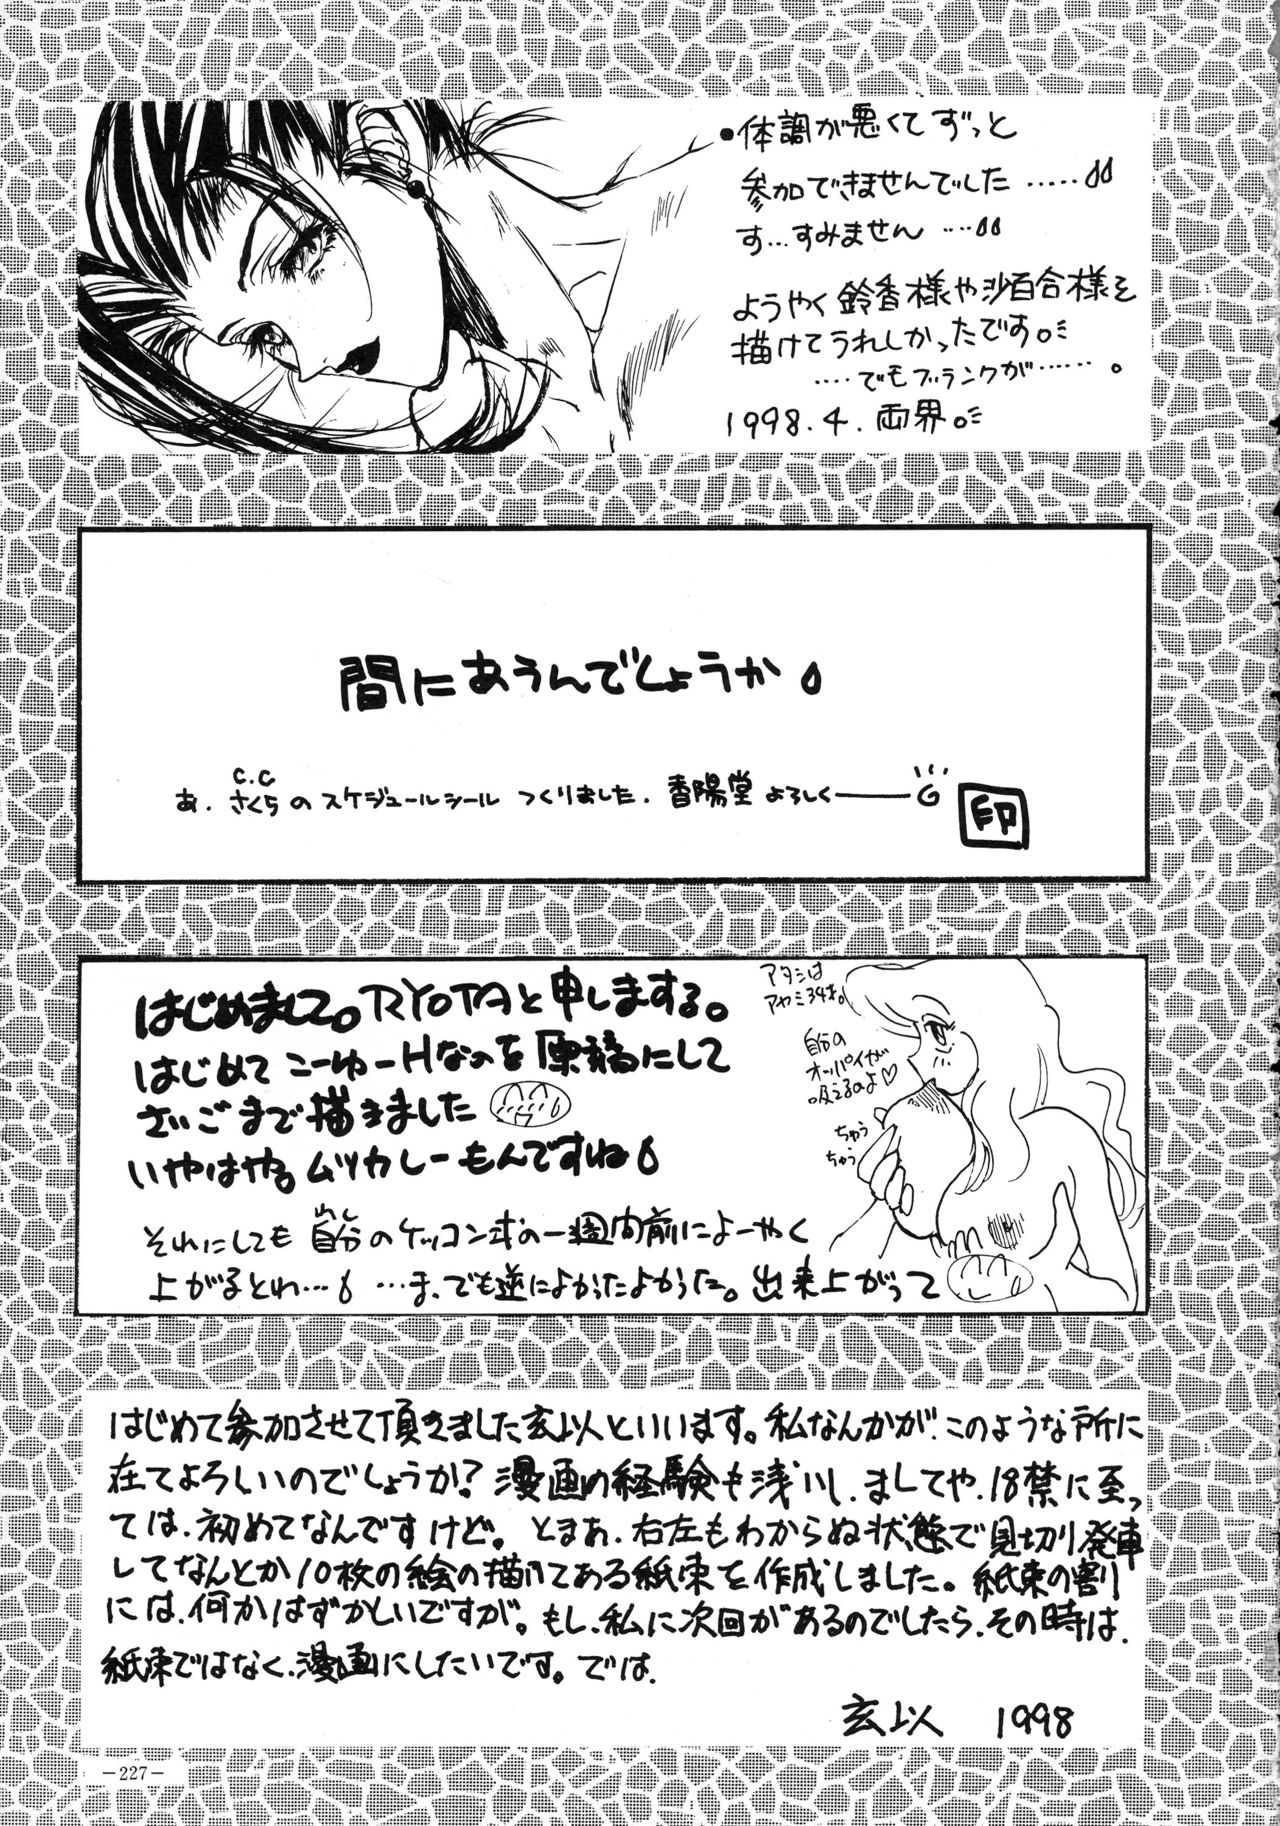 •体調が悪くてずっと
参加できませんでした……
す…すみません……
ようやく鈴香様や沙百合様を
描けてうれしかったです。
……でもブランクが……。
1998.4.両界。
間にあうんでしょうか
C.C
あ.さくらのスケジュールシールつくりました.香陽堂よろしく――G
印
はじめまして。RYOTAと申しまする。
はじめてこーゆーHなのを原稿にして
さいごまで描きました
いやはや。ムツカシーもんですね
それにしても自分のケッコン式の一週間前によーやく
上がるとわ… …ま、でも逆によかったよかった。出来上がって
アタシは
アヤミ34才。
自分の
オッパイが
吸えるのよ♡
ちゅう
ちゅう
はじめて参加させて頂きました玄以といいます。私なんかが、このような所に
在てよろしいのでしょうか?漫画の経験も浅いし、ましてや、18禁に至っ
ては、初めてなんですけど。とまあ、右左もわからぬ状態で見切り発車
してなんとか10枚の絵の描いてある紙束を作成しました。紙束の割り
には、何かはずかしいですが。もし、私に次回があるのでしたら、その時は、
紙束ではなく、漫画にしたいです。では、
玄以 1998
－227－